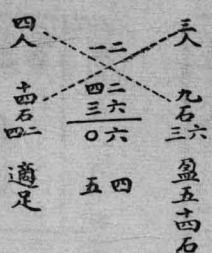 三人
九石
三六
盈五十四石
一二
四二
三六
〇六
五四
四人
十四石
四二
適足